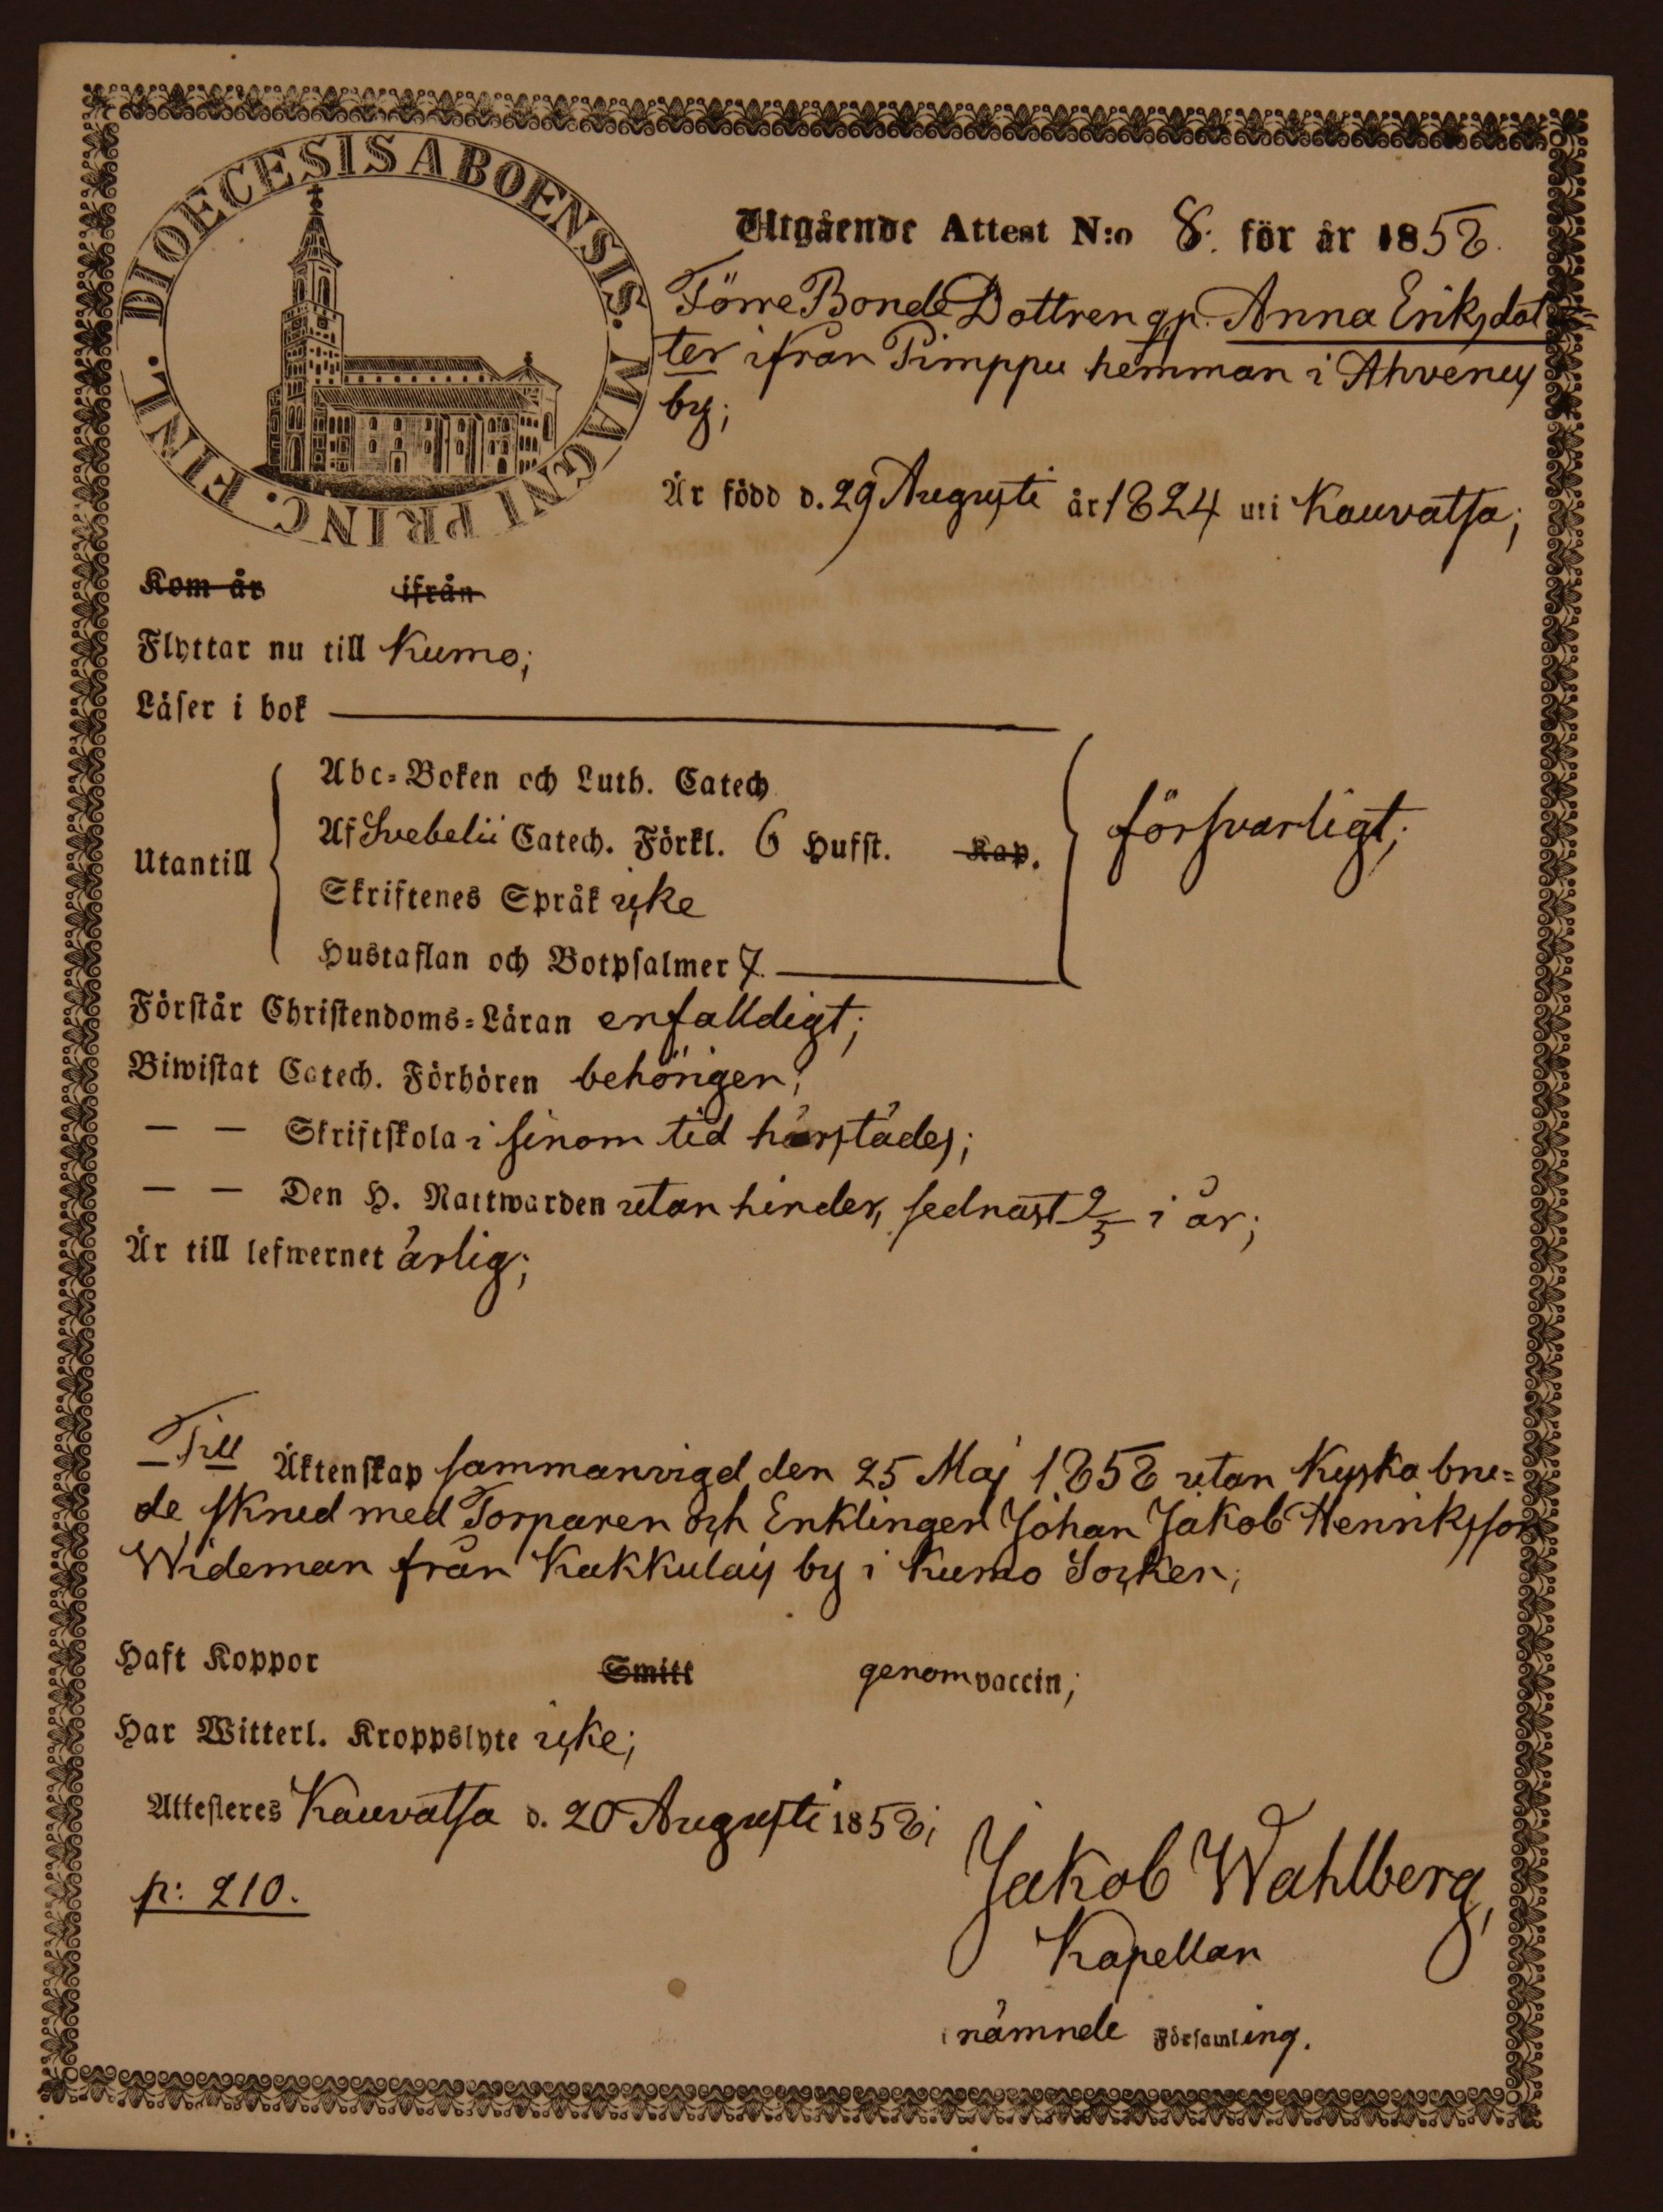 DIOECESIS ABOENSIS. MAGNI PRINC. FINL.
Utgående Attest N:o 8. för år 1858.
Förre Bonde Dottren qp. Anna Eriksdot=
ter ifrån Pimppu hemman i Ahvenus
by;
Är född d. 29 Augusti år 1824 uti Kauvatsa;
Kom år ifrån
Flyttar nu till Kumo;
Läser i bok
Utantill
Abc-Boken och Luth. Catech
Af Svebelii Catech. Förkl. 6 Hufst. Kap.
försvarligt;
Skriftenes Språk icke
Hustaflan och Botpsalmer 7.
Förstår Christendoms-Läran enfalldigt;
Biwistat Catech. Förhören behörigen;
— — Skriftskola i sinom tid härstädes;
— — Den H. Nattwarden utan hinder, sednast 2/5 i år;
Är till lefwernet ärlig;
Till Äktenskap sammanvigd den 25 Maj 1858 utan Kyska bru=
de skrud med Torparen och Enklingen Johan Jakob Henriksson
Wideman från Kakkulais by i Kumo Socken;
Haft Koppor Smitt genom vaccin;
Har Witterl. Kroppslyte icke;
Attesteres Kauvatsa d. 20 Augusti 1858;
p: 210.
Jakob Wahlberg,
Kapellan
i nämnde Församling.